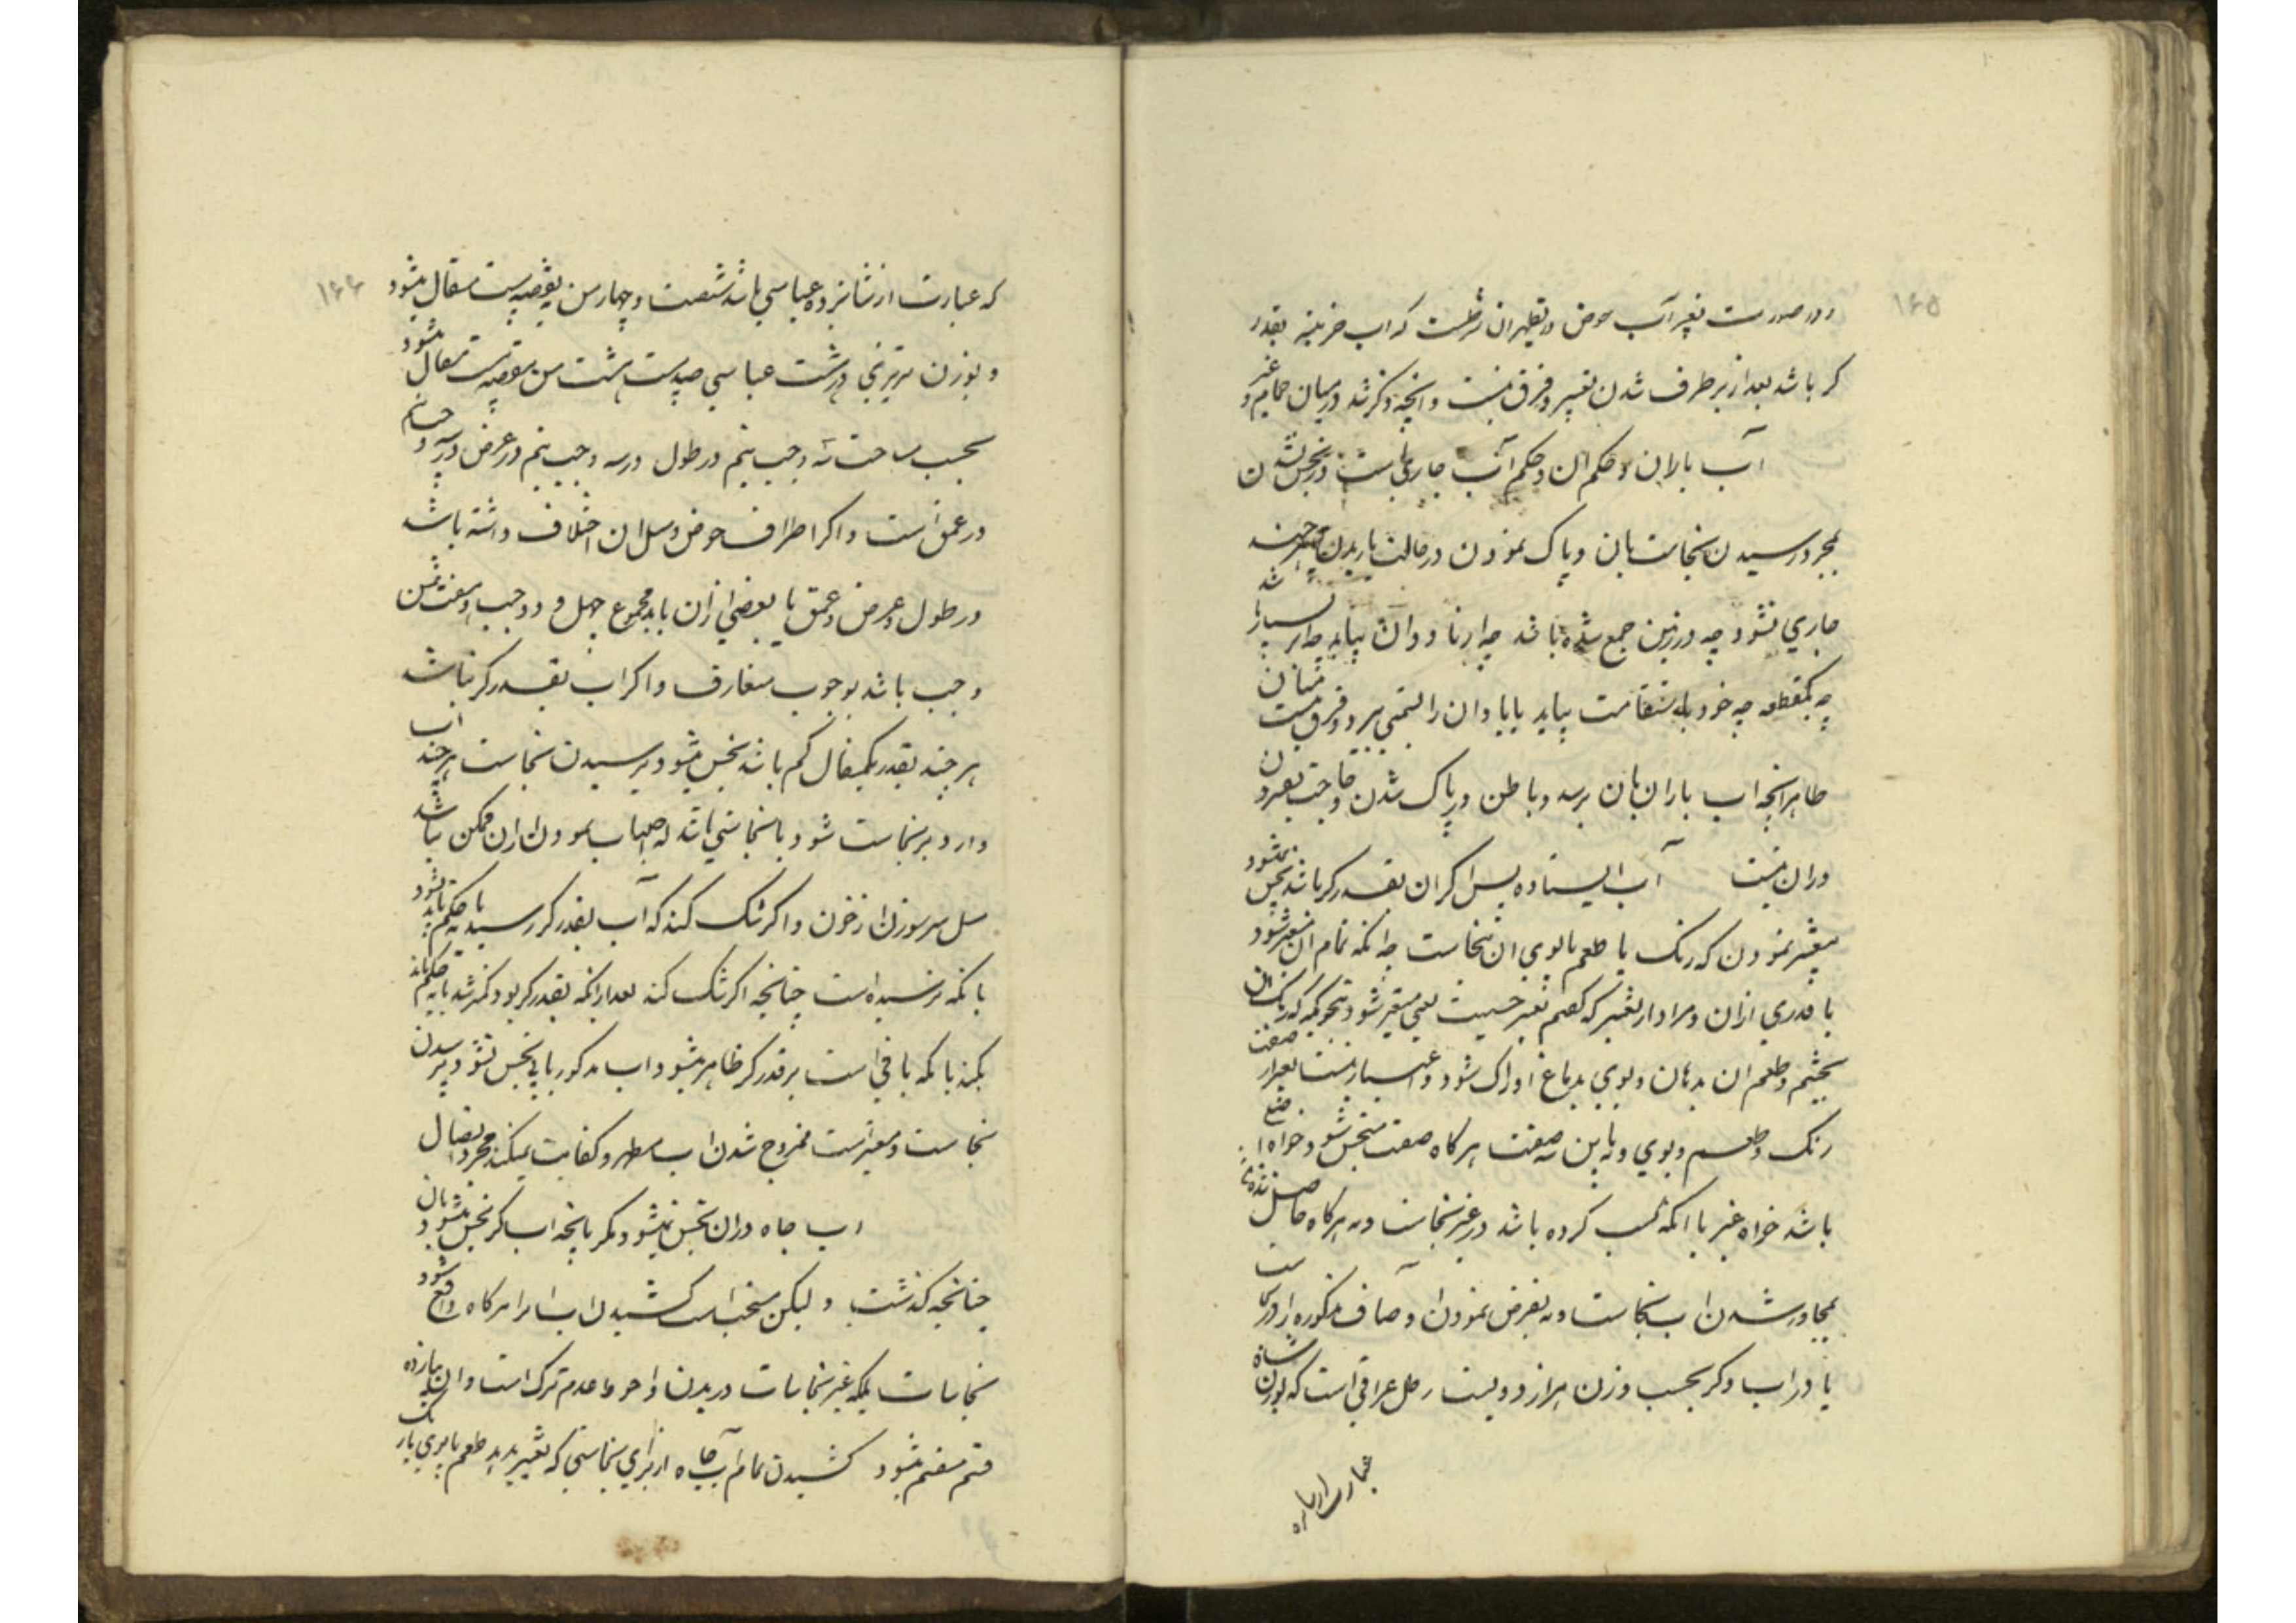 ۱۶۵
و در صورت تغیر آب حوض در تطهیر ان شرطست که اب خزینه بقدر
کر باشد بعد از بر طرف شدن تغییر و فرق نیست و انچه ذکر شد در میان حمام و غیر
آب باران و حکم ان حکم آب جاریست در نجس نشدن
بمجرد رسیدن نجاست بان و پاک نمودن در حالت باریدن هر چند
جاری نشود چه در زمین جمع شده باشد چه از ناودان بیاید چه بسیار باشد
چه یکقطعه چه خود باستقامت بیاید یا باد ان را بسمتی ببرد و فرق نیست میان
ظاهر انچه اب باران بان برسد و باطن در پاک شدن و حاجت بفشردن
دران نیست آب ایستاده پس اگر ان بقدر کر باشد نجس نمیشود
بتغییر نمودن که رنک یا طعم یا بوی ان بنجاست چه انکه تمام ان متغیر شود
یا قدری ازان و مراد از تغییر که کفتم تغیر حسیست یعنی متغیر شود بنحوی که رنک ان
بچشم و طعم ان بدهان و بوی بدماغ ادراک شود و اعتبار نیست بغیر از صفت
رنک و طعم و بوی و نه باین سه صفت هر کاه صفت متنجس شود خواه
باشد خواه غیر با انکه کسب کرده باشد در غیر نجاست و نه هر کاه حاصل شده
بمجاور شدن اب بنجاست و نه بفرض نمودن اوصاف مذکوره را در نجاست
یا در اب و کر بحسب وزن هزار و دویست رطل عراقی است که بوزن شاه
۱۶۶
که عبارت از شانزده عباسی باشد شصت و چهار من بنقص بیست مثقال میشود
و بوزن تبریزی هشت عباسی صد و بیست و هشت من بنقص بیست مثقال میشود
بحسب مساحت سه وجب و نیم در طول در سه وجب و نیم در عرض در سه وجب و نیم
در عمق است و اکر اطراف حوض و مثل ان اختلاف داشته باشد
در طول و عرض و عمق یا بعضی ازان باید مجموع چهل و دو وجب و هفت ثمن
وجب باشد بوجوب متعارف و اکر اب بقدر کر نباشد
هر چند بقدر یکمثقال کم باشد نجس میشود برسیدن نجاست هر چند اب
وارد بر نجاست شود یا نجاستی باشد که اجتناب نمودن ازان ممکن نباشد
مثل سر سوزن از خون و اکر شک کند که آب بقدر کر رسیده یا نه حکم باید بشود
بانکه نرسیده است چنانچه اکر شک کند بعد از انکه بقدر کر بود کمتر شد یا نه حکم باید
بکند بانکه باقی است بر قدر کر ظاهر میشود اب مذکور باید نجس نشود برسیدن
نجاست و معتبر است ممزوج شدن اب مطهر و کفایت نمیکند مجرد اتصال
اب چاه دران نجس نمیشود مکر بانچه اب کر نجس میشود بان
چنانچه کذشت و لیکن مستحب است کشیدن اب از برا هر کاه واقع شود
نجاسات بلکه غیر نجاسات دریدن و احوط عدم ترک است و ان به یازده
قسم منقسم میشود کشیدن تمام آب چاه از برای نجاستی که تغییر بدهد طعم یا بوی یا رنک